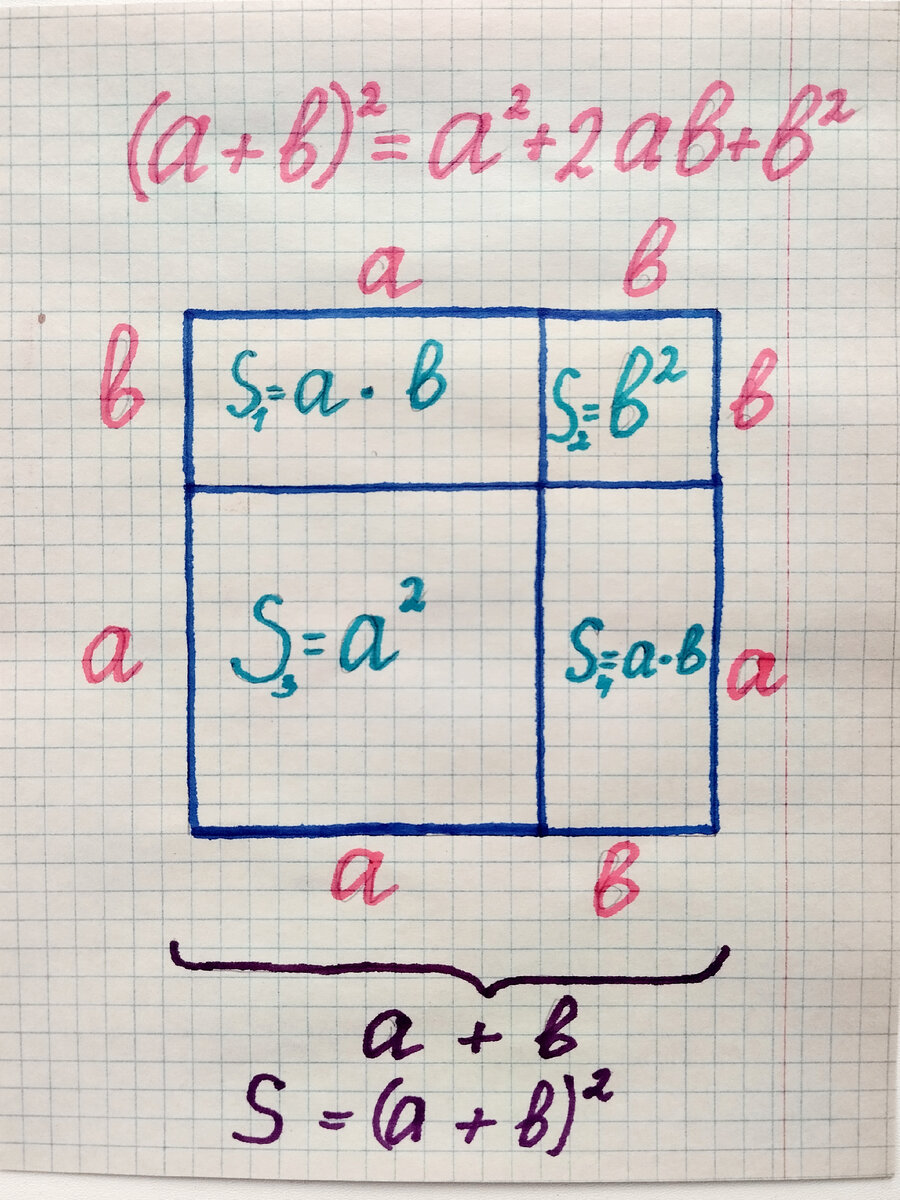 (a+b)²=a²+2ab+b²
a b
b S₁=a·b S₂=b² b
a S₃=a² S₄=a·b a
a b
a + b
S = (a + b)²